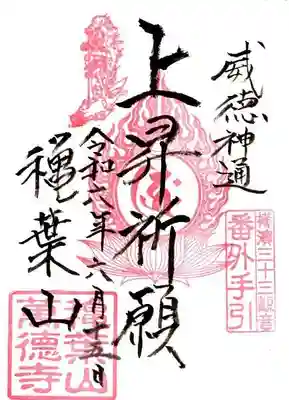 威徳神通
横濱三十三観音
番外手引
上昇祈願
令和六年六月十五日
葉山
葉山
萬德寺